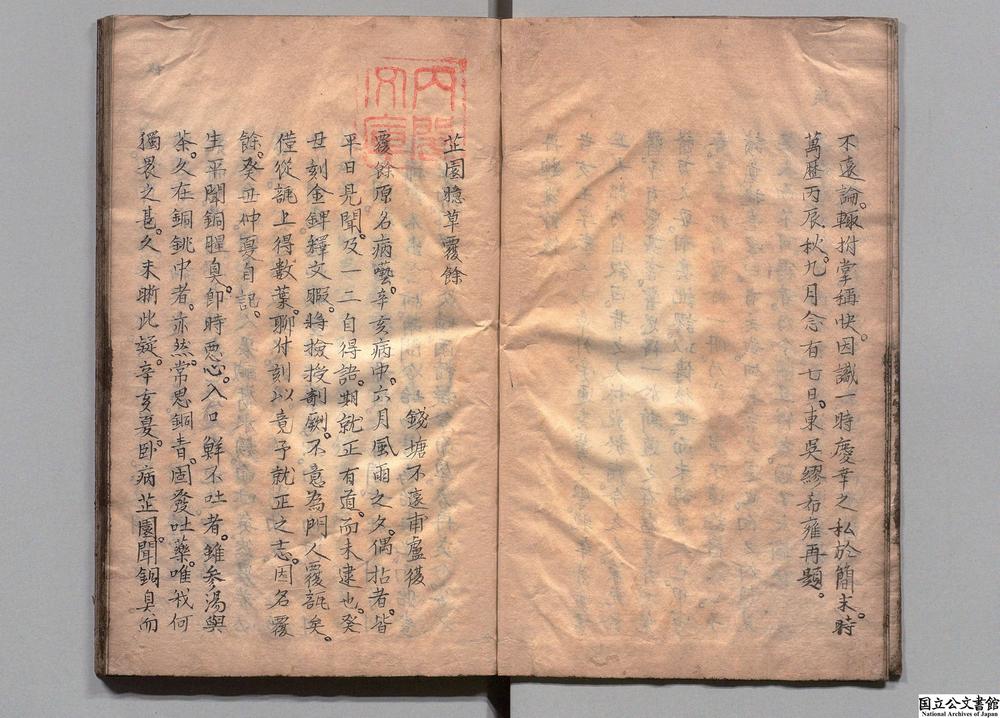 不遠論。輙拊掌稱快。因識一時慶幸之私於簡末。時
萬曆丙辰秋。九月念有七日。東吳繆希雍再題。
芷園臆草覆餘
錢塘不遠甫盧復
覆餘原名病囈。辛亥病中。六月風雨之夕。偶拈者。皆
平日見聞。及一二自得語。期就正有道。而未逮也。癸
丑刻金錍釋文暇。將撿授剞劂。不意為門人覆瓿矣。
僅從瓿上得數葉。聊付刻以竟予就正之志。因名覆
餘。癸丑仲夏自記。
生平聞銅腥臭。卽時惡心。入口鮮不吐者。雖參湯與
茶。久在銅銚中者。亦然。常思銅青。固發吐藥。唯我何
獨畏之甚。久未晰此疑。辛亥夏。卧病芷園。聞銅臭而
内閣文庫
国立公文書館
National Archives of Japan